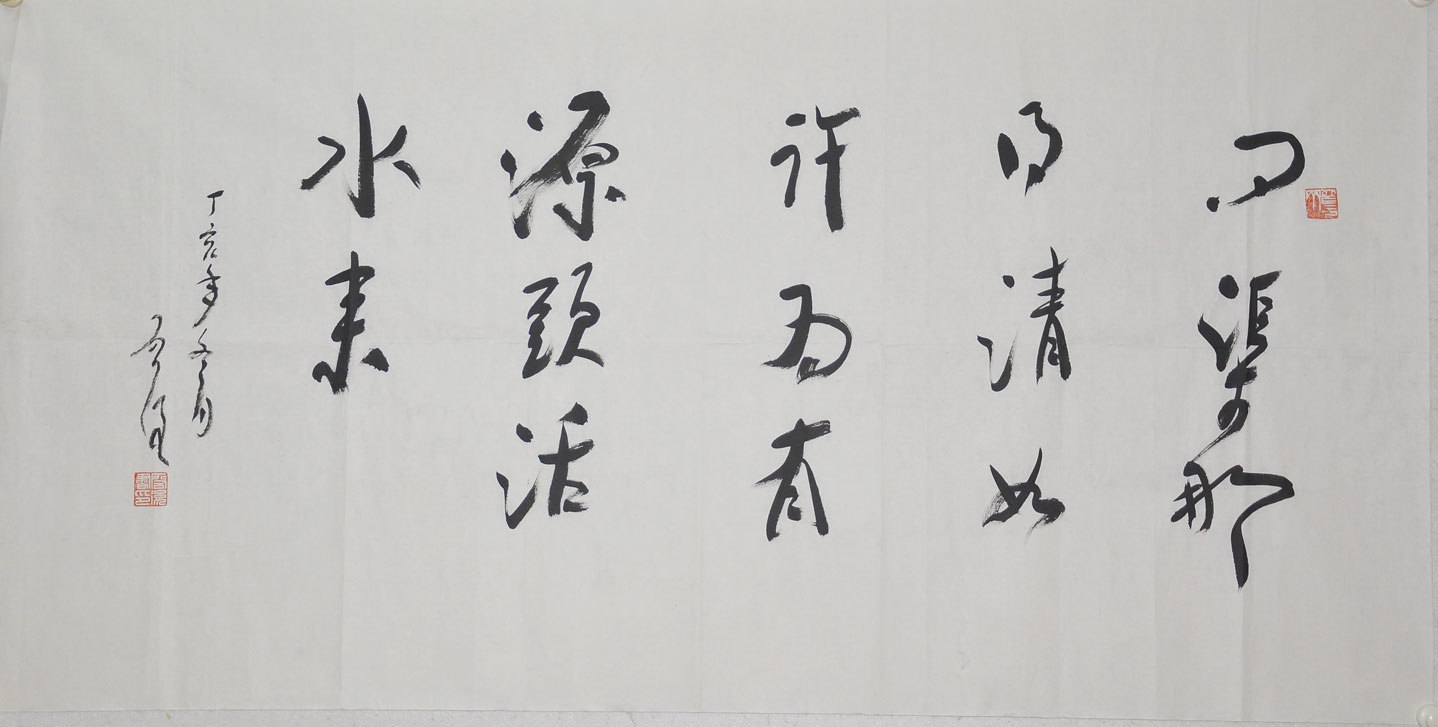 问渠那
得清如
许为有
源頭活
水来
丁亥年冬月